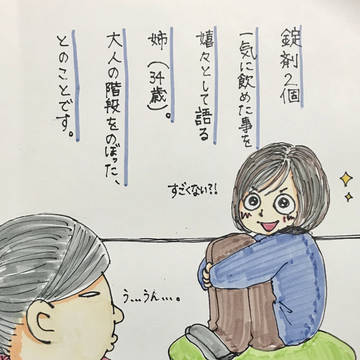 錠剤2個
一気に飲めた事を
嬉々として語る
姉(34歳)。
大人の階段をのぼった、
とのことです。
すごくない?!
う...うん...。